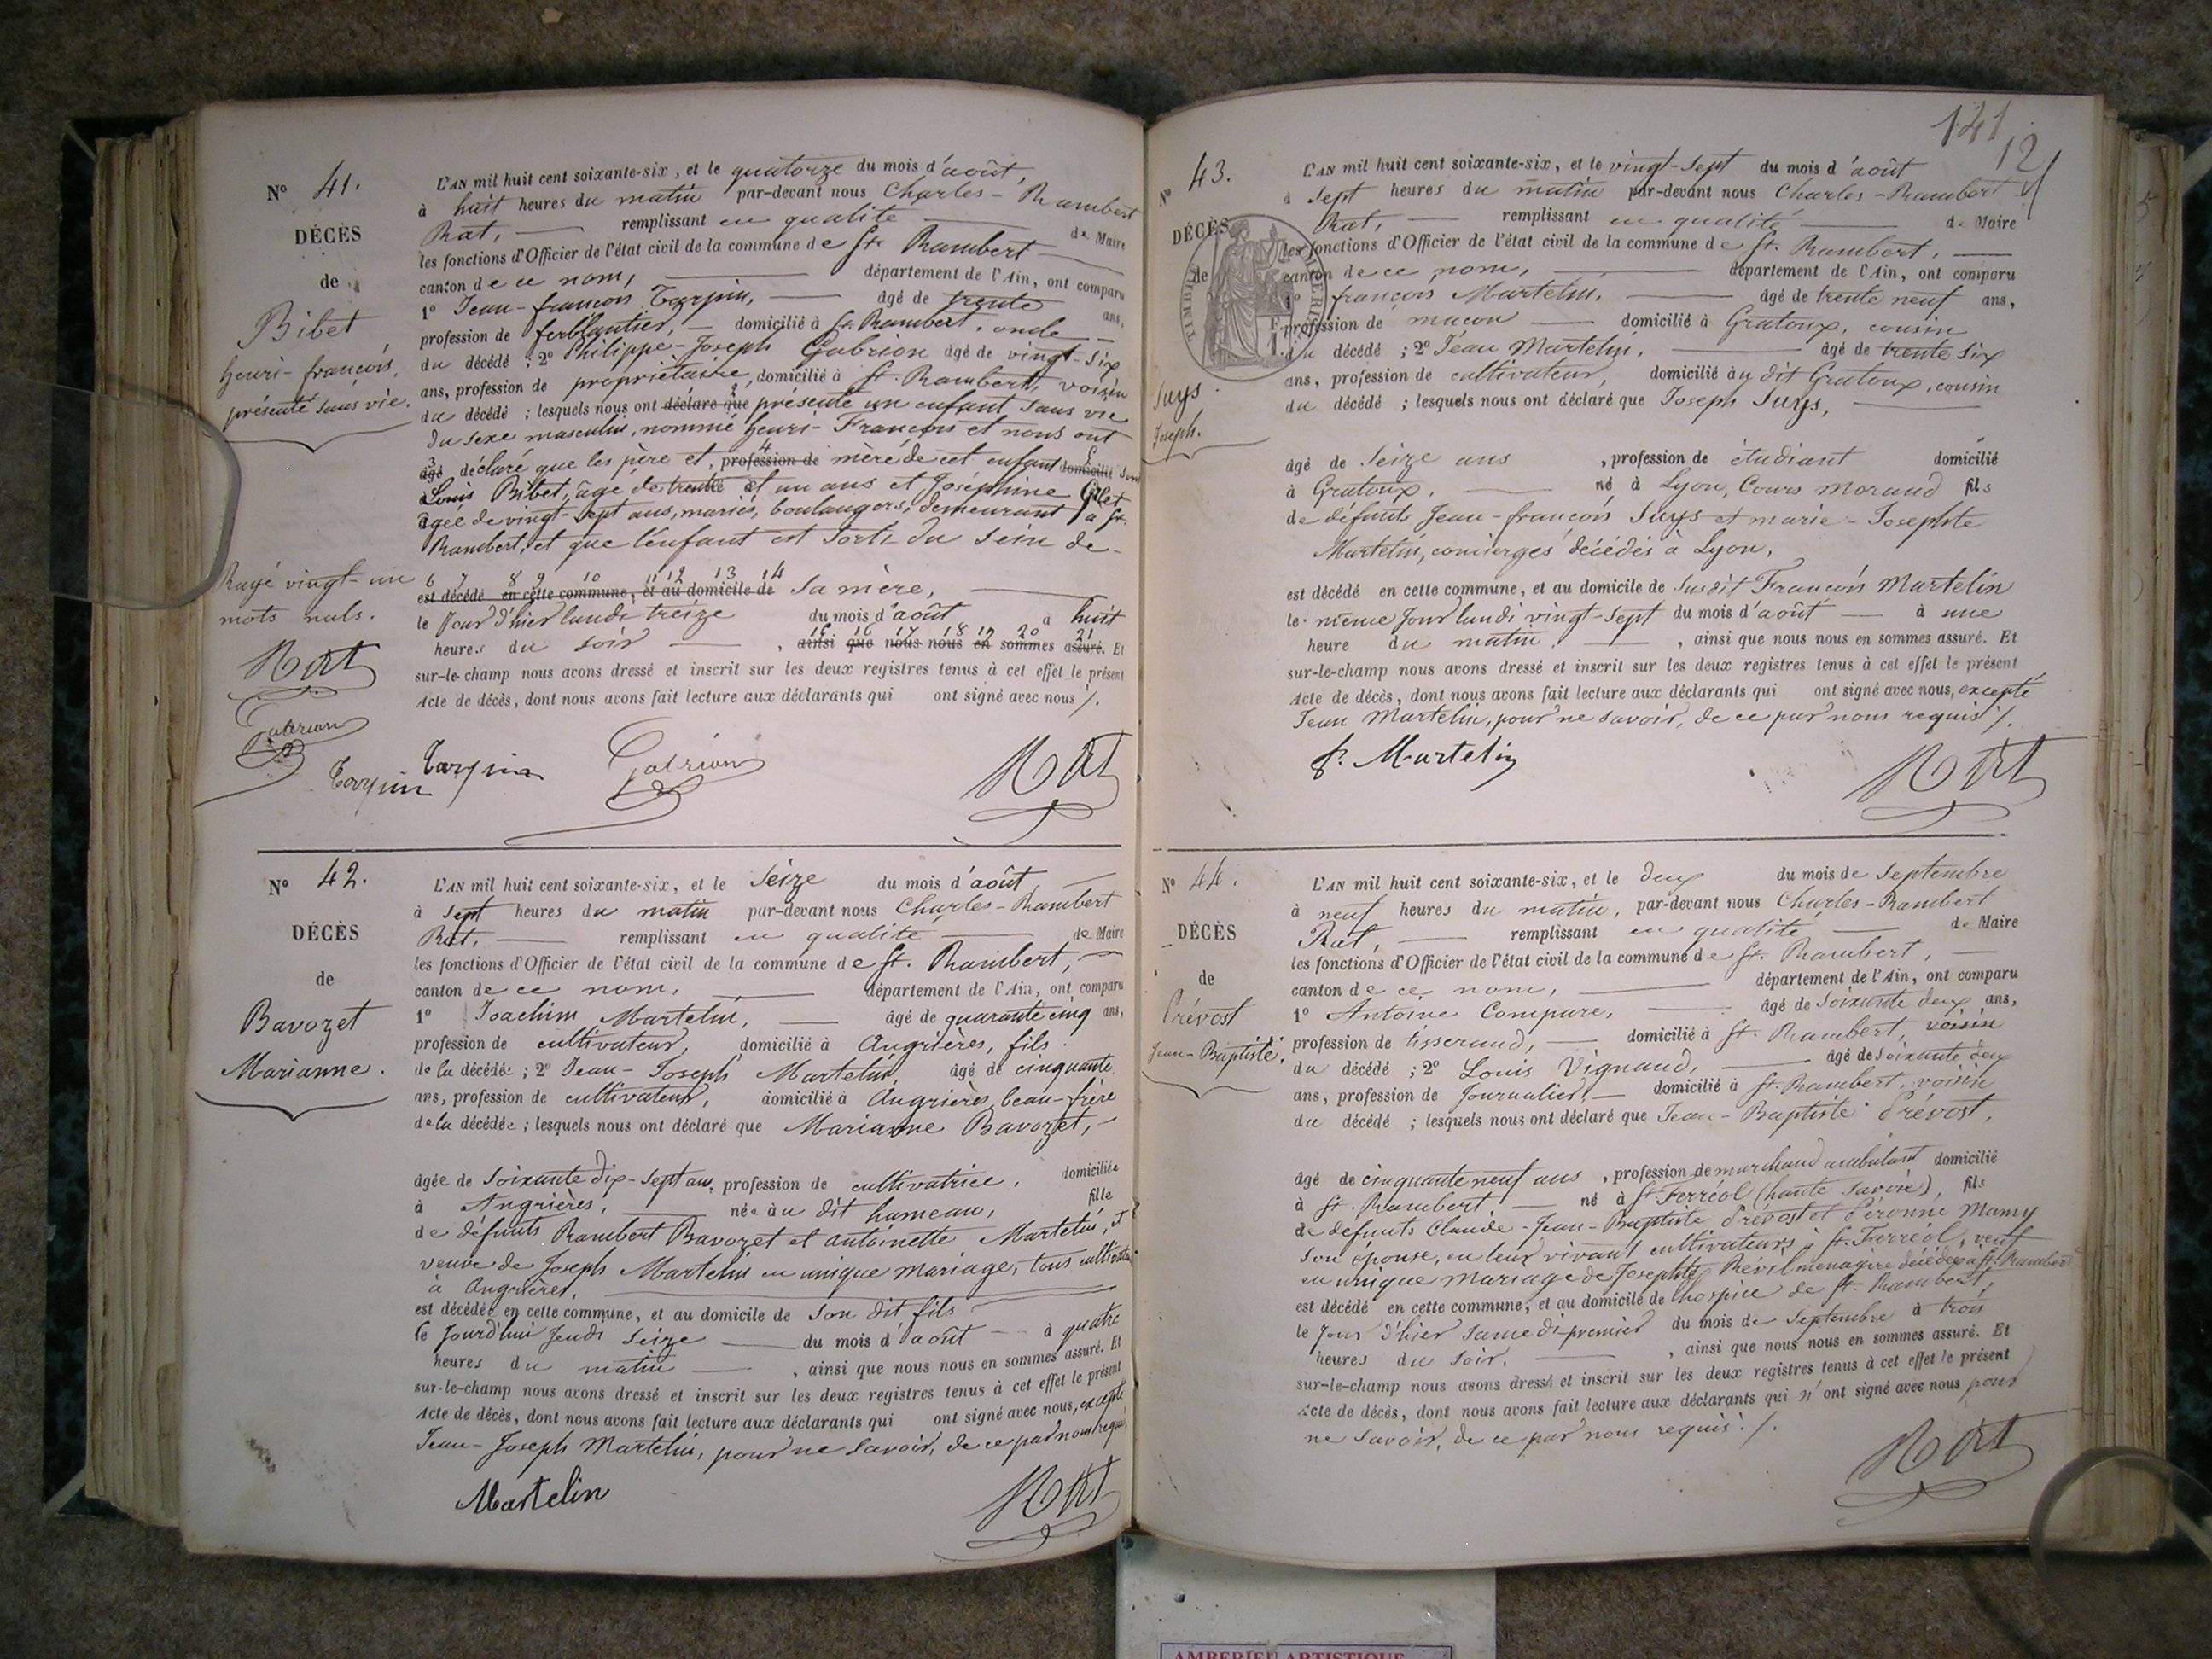 N° 41.
DÉCÈS
de
Bibet,
henri-françois,
présenté sans vie.
L'AN mil huit cent soixante-six, et le quatorze du mois d'août,
à huit heures du matin par-devant nous Charles-Rambert
Rat, remplissant en qualité de Maire
les fonctions d'Officier de l'état civil de la commune de St. Rambert
canton de ce nom, département de l'Ain, ont comparu
1° Jean-françois Tarpin, âgé de trente ans,
profession de ferblantier, domicilié à St. Rambert, oncle
du décédé ; 2° Philippe-Joseph Gabrion âgé de vingt-six
ans, profession de propriétaire, domicilié à St. Rambert, voisin
du décédé ; lesquels nous ont déclaré que présenté un enfant sans vie
du sexe masculin, nommé henri-François et nous ont
âgé déclaré que les père et, profession de mère de cet enfant domicilié sont
Louis Bibet, âgé de trente et un ans et Joséphine Gilet
âgée de vingt-sept ans, mariés, boulangers, demeurant à St.
Rambert, et que l'enfant est sorti du sein de
6 7 8 9 10 11 12 13 14
est décédé en cette commune, et au domicile de sa mère,
le Jour d'hier lundi treize du mois d'août à huit
15 16 17 18 19 20 21
heures du soir, ainsi que nous nous en sommes assuré. Et
sur-le-champ nous avons dressé et inscrit sur les deux registres tenus à cet effet le présent
Acte de décès, dont nous avons fait lecture aux déclarants qui ont signé avec nous /.
Rayé vingt-un
mots nuls.
Rat
Gabrion
Tarpin Tarpin Gabrion Rat
N° 42.
DÉCÈS
de
Bavozet
Marianne.
L'AN mil huit cent soixante-six, et le Seize du mois d'août
à sept heures du matin par-devant nous Charles-Rambert
Rat, remplissant en qualité de Maire
les fonctions d'Officier de l'état civil de la commune de St. Rambert,
canton de ce nom, département de l'Ain, ont comparu
1° Joachim Martelin, âgé de quarante cinq ans,
profession de cultivateur, domicilié à Angrières, fils
de la décédée ; 2° Jean-Joseph Martelin, âgé de cinquante
ans, profession de cultivateur, domicilié à Angrières, beau-frère
de la décédée ; lesquels nous ont déclaré que Marianne Bavozet,
âgée de soixante dix-sept ans, profession de cultivatrice, domiciliée
à Angrières, née au dit hameau, fille
de défunts Rambert Bavozet et antoinette Martelin, et
veuve de Joseph Martelin en unique mariage, tous cultivateurs
à Angrières,
est décédée en cette commune, et au domicile de son dit fils
le Jourd'hui Jeudi seize du mois d'août à quatre
heures du matin, ainsi que nous nous en sommes assuré. Et
sur-le-champ nous avons dressé et inscrit sur les deux registres tenus à cet effet le présent
Acte de décès, dont nous avons fait lecture aux déclarants qui ont signé avec nous, excepté
Jean-Joseph Martelin, pour ne savoir, de ce par nous requis,
Martelin Rat
141
12
N° 43.
DÉCÈS
de
Suys
Joseph.
L'AN mil huit cent soixante-six, et le vingt-sept du mois d'août
à sept heures du matin par-devant nous Charles-Rambert
Rat, remplissant en qualité de Maire
les fonctions d'Officier de l'état civil de la commune de St. Rambert,
canton de ce nom, département de l'Ain, ont comparu
1° françois Martelin, âgé de trente neuf ans,
profession de maçon domicilié à Gratoux, cousin
du décédé ; 2° Jean Martelin, âgé de trente six
ans, profession de cultivateur, domicilié au dit Gratoux, cousin
du décédé ; lesquels nous ont déclaré que Joseph Suys,
âgé de Seize ans, profession de étudiant domicilié
à Gratoux, né à Lyon, Cours Morand fils
de défunts Jean-françois Suys et marie-Josephte
Martelin, concierges décédés à Lyon,
est décédé en cette commune, et au domicile de susdit François Martelin
le même Jour lundi vingt-sept du mois d'août à une
heure du matin, ainsi que nous nous en sommes assuré. Et
sur-le-champ nous avons dressé et inscrit sur les deux registres tenus à cet effet le présent
Acte de décès, dont nous avons fait lecture aux déclarants qui ont signé avec nous, excepté
Jean Martelin, pour ne savoir, de ce par nous requis /.
f. Martelin Rat
N° 44.
DÉCÈS
de
Prévost
Jean-Baptiste.
L'AN mil huit cent soixante-six, et le deux du mois de Septembre
à neuf heures du matin, par-devant nous Charles-Rambert
Rat, remplissant en qualité de Maire
les fonctions d'Officier de l'état civil de la commune de St. Rambert,
canton de ce nom, département de l'Ain, ont comparu
1° Antoine Compare, âgé de Soixante deux ans,
profession de tisserand, domicilié à St. Rambert, voisin
du décédé ; 2° Louis Vignaud, âgé de soixante deux
ans, profession de Journalier, domicilié à St. Rambert, voisin
du décédé ; lesquels nous ont déclaré que Jean-Baptiste Prévost,
âgé de cinquante neuf ans, profession de marchand ambulant domicilié
à St. Rambert né à St. Ferréol (haute Savoie), fils
de défunts Claude-Jean-Baptiste Prévost et Péronne Mamy
son épouse, en leur vivant cultivateurs à St. Ferréol, veuf
en unique mariage de Josephte Révil ménagère décédée à St. Rambert
est décédé en cette commune, et au domicile de l'hospice de St. Rambert,
le Jour d'hier samedi premier du mois de Septembre à trois
heures du soir, ainsi que nous nous en sommes assuré. Et
sur-le-champ nous avons dressé et inscrit sur les deux registres tenus à cet effet le présent
Acte de décès, dont nous avons fait lecture aux déclarants qui n'ont signé avec nous pour
ne savoir, de ce par nous requis /.
Rat
AMBERIEU ARTISTIQUE